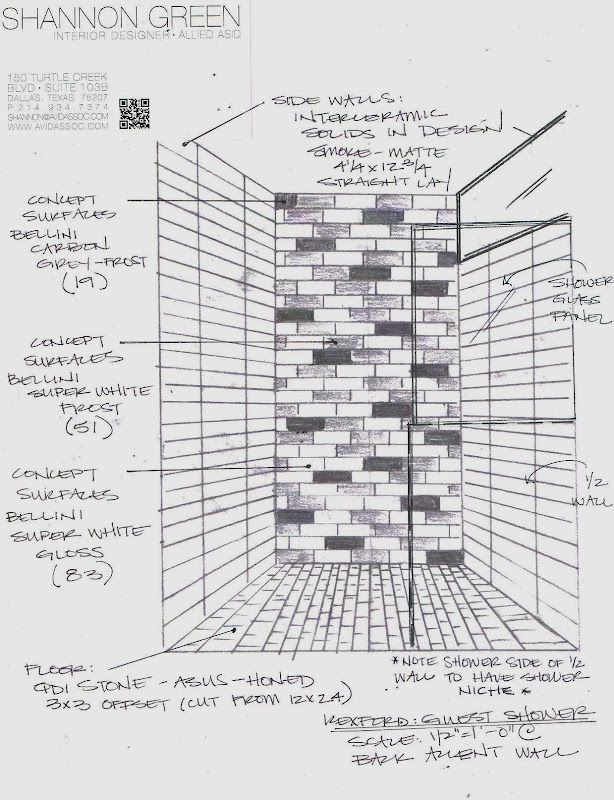 SHANNON GREEN
INTERIOR DESIGNER • ALLIED ASID
150 TURTLE CREEK
BLVD • SUITE 103B
DALLAS, TEXAS 75207
P 214 934 7374
SHANNON@AVIDASSOC.COM
WWW.AVIDASSOC.COM
SIDE WALLS:
INTERCERAMIC
SOLIDS IN DESIGN
SMOKE - MATTE
4 1/4 X 12 3/4
STRAIGHT LAY
CONCEPT
SURFACES
BELLINI
CARBON
GREY-FROST
(19)
SHOWER
GLASS
PANEL
CONCEPT
SURFACES
BELLINI
SUPER WHITE
FROST
(51)
CONCEPT
SURFACES
BELLINI
SUPER WHITE
GLOSS
(83)
1/2
WALL
FLOOR:
QDI STONE - ASUS - HONED
3X3 OFFSET (CUT FROM 12X24)
*NOTE SHOWER SIDE OF 1/2
WALL TO HAVE SHOWER
NICHE *
REXFORD: GUEST SHOWER
SCALE: 1/2" = 1'-0" @
BACK ACCENT WALL